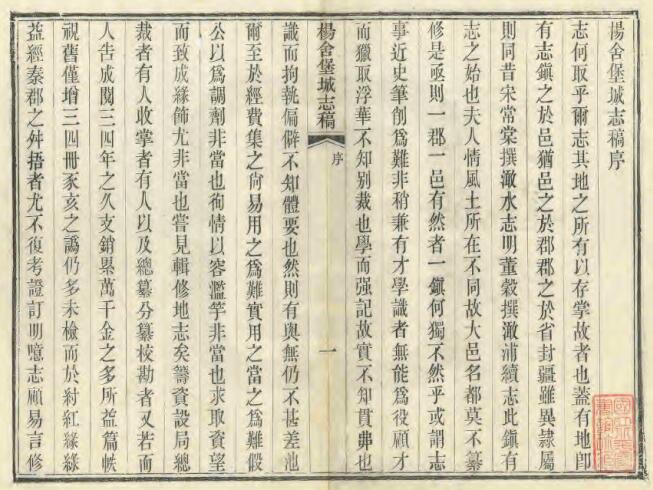 楊舍堡城志稿序
志何取乎爾志其地之所有以存掌故者也蓋有地卽
有志鎮之於邑猶邑之於郡郡之於省封疆雖異隸屬
則同昔宋常棠撰澉水志明董穀撰澉浦續志此鎮有
志之始也夫人情風土所在不同故大邑名都莫不纂
修是亟則一郡一邑有然者一鎮何獨不然乎或謂志
事近史筆創爲難非稍兼有才學識者無能爲役顧才
而獵取浮華不知別裁也學而强記故實不知貫弗也
楊舍堡城志稿
序
一
識而拘執偏僻不知體要也然則有與無仍不甚差池
爾至於經費集之尙易用之爲難實用之當之爲難假
公以爲調劑非當也徇情以容濫竽非當也求取資望
而致成緣飾尤非當也嘗見輯修地志矣籌資設局總
裁者有人收掌者有人以及總纂分纂校勘者又若而
人告成閱三四年之久支銷累萬千金之多所益篇帙
視舊僅增三四冊豕亥之譌仍多未檢而於紂紅緣綠
益經秦郡之舛捂者尤不復考證訂明噫志顧易言修